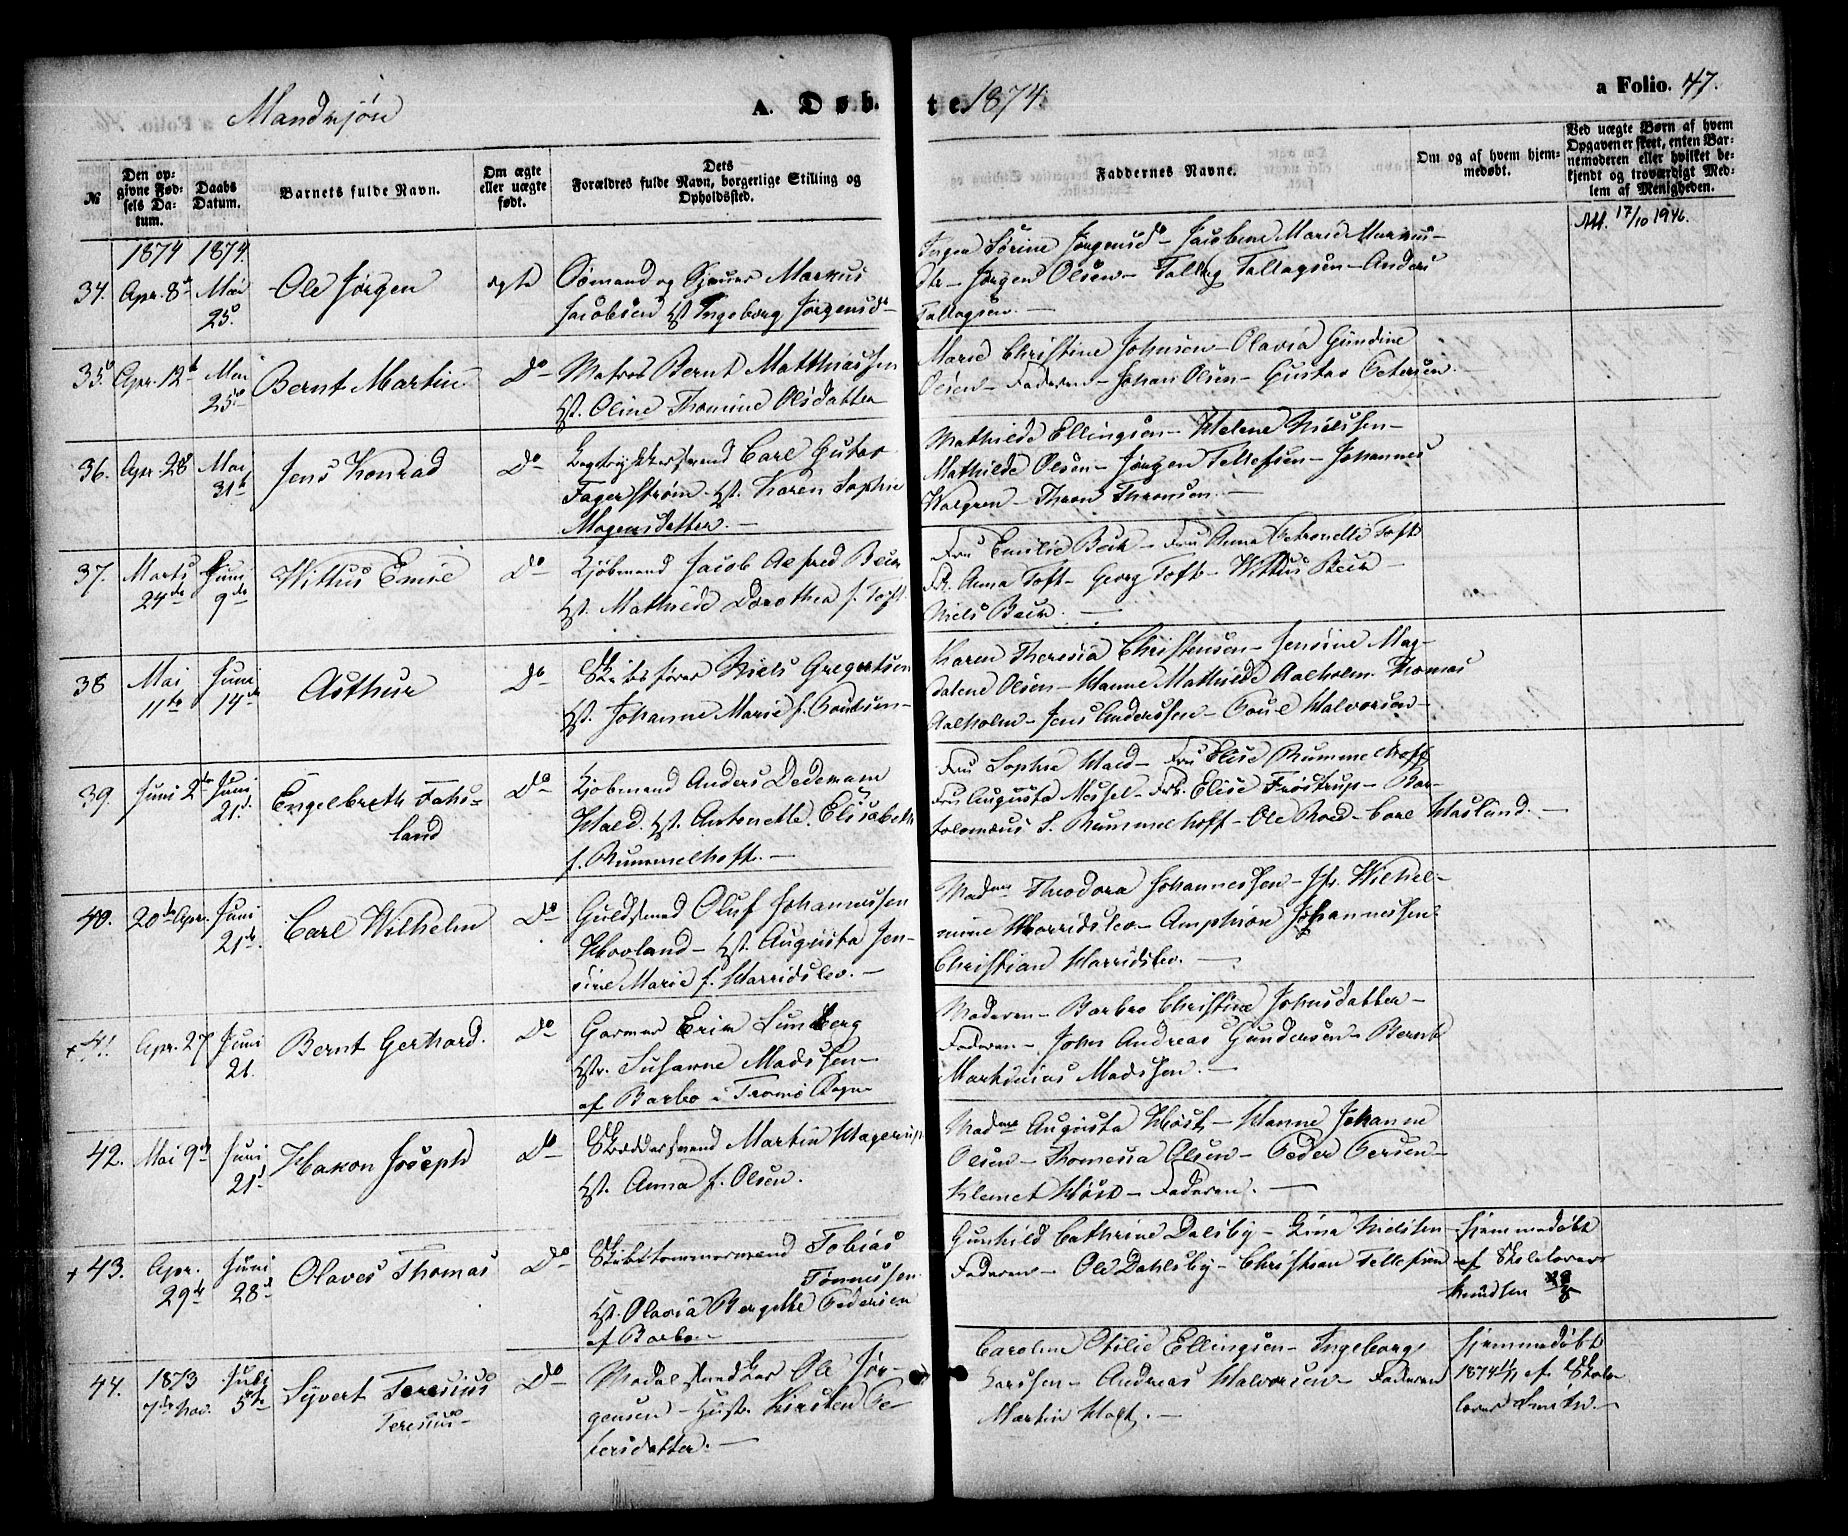 Mandkjøn
A. Døb-
te. 1874.
a Folio. 47.
№
Den op-
givne Fød-
sels Da-
tum.
Daabs
Datum.
Barnets fulde Navn.
Om ægte
eller uægte
født.
Dets
Forældres fulde Navn, borgerlige Stilling og
Opholdssted.
Faddernes Navne.
Om og af hvem hjem-
medøbt.
Ved uægte Børn af hvem
Opgaven er skeet, enten Bar-
nemoderen eller hvilket be-
kjendt og troværdigt Med-
lem af Menigheden.
1874 1874.
34. Apr. 8de Mai
25.
Ole Jørgen
ægte
Sømand og Markus
Jacobsen Hst Ingeborg Jørgensd
Inger Sørine Jørgensd – Jacobine Marie Markus-
dtr – Jørgen Olsen – Tallag Tallagsen – Anders
Tallagsen. –
Att. 17/10 1946.
35. Apr. 12te Mai
25de
Bernt Martin
Do
Matros Bernt Matthiassen
Hst. Oline Thomine Olsdatter
Marie Christine Johnsen – Olavia Gundine
Olsen – Faderen – Johan Olsen – Gustav Petersen. –
36. Apr. 28 Mai
31te
Jens Konrad
Do
Bogtrykkersvend Carl Gustav
Fagerstrøm. Hst. Karen Sophie
Mogensdatter. –
Mathilde Ellingsen – Helene Nielssen –
Mathilde Olsen – Jørgen Tellefsen – Johannes
Walgren – Thron Thronsen. –
37. Marts
24de
Juni
9de
Wittus Emil
Do
Kjøbmand Jacob Alfred Beck
Hst. Mathilde Dorothea f. Toft
Fru Emilie Beck – Fru Anna Petronelle Toft
Frk. Anna Toft – Georg Toft – Wittus Beck –
Niels Beck. –
38 Mai
11te
Juni
14de
Arthur
Do
Skibsfører Niels Gregertsen
Hst. Johanne Marie f. Poulsen –
Karen Theresia Christensen – Jensine Mag-
dalene Olsen – Hanne Mathilde Aalholm. Thomas
Aalholm – Jens Anderssen – Poul Halvorsen –
39. Juni 2de Juni
21.
Engelbreth Fahs-
land
Do
Kjøbmand Anders Dedekam
Hald. Hst. Antonette Elisabeth
f. Rummelhoff. –
Fru Sophie Hald – Fru Elise Rummelhoff
Fru Augusta Messel – Frk. Elise Frøstrup – Bar-
tolomæus S. Rummelhoff – Ole Roed – Carl Hasland. –
40. 20de Apr. Juni
21de
Carl Wilhelm
Do
Guldsmed Oluf Johannessen
Hovland – Hst. Augusta Jen-
sine Marie f. Harridslev. –
Madme Theodora Johannessen – Wilhel-
mine Harridslev – Amphion Johannessen
Christian Harridslev. –
x 41. Apr. 27 Juni
21.
Bernt Gerhard.
Do
Garver Erik Lundberg
Hstr. Susanne Madssen –
af Barbo i Tromø Sogn
Moderen – Barbro Christine Johnsdatter –
Faderen – John Andreas Gundersen – Bernt
Madssen. –
42. Mai 9de Juni
21.
Hakon Joseph
Do
Skræddersvend Martin Hagerup
Hst. Anna f. Olsen.
Madme Augusta Høst – Hanne Johanne
Olsen – Thomessa Olsen – Peder Persen –
Klemet Høst – Faderen. –
x 43. Apr.
29de
Juni
28de
Olaves Thomas
Do
Skibstømmermand Tobias
Tønnessen
Hst. Olavia Bergitte Pedersen
af Barbo –
Gunhild Cathrine Dalsby – Lina Nielsen
Faderen – Ole Dahlsby – Christian Tellefsen
Hjemmedøbt
af Skolelærer
Knudsen
44. 1873
7de Nov.
Juli
5te
Syvert Teresius
Teresius –
Do
Ole Jør-
gensen – Hustr. Kirsten Pe-
tersdatter. –
Caroline Otilie Ellingsen – Ingeborg
Larssen – Andreas Halvorsen – Faderen
Martin Holt. –
Hjemmedøbt
1874 af Skole-
lærer